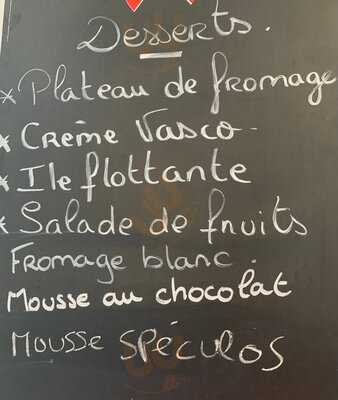 Desserts.
* Plateau de fromage
* Crème Vasco.
* Ile flottante
* Salade de fruits
Fromage blanc.
Mousse au chocolat
Mousse spéculos